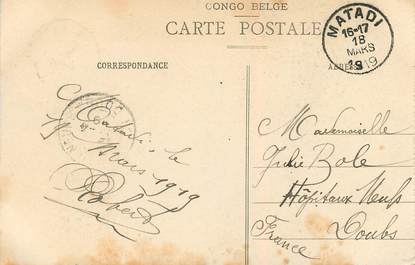 CONGO BELGE
CARTE POSTALE
MATADI
16-17
18
MARS
1919
CORRESPONDANCE
Matadi, le
Mars 1919
Robert
Mademoiselle
Julie Bole
Hôpitaux Neufs
Doubs
France